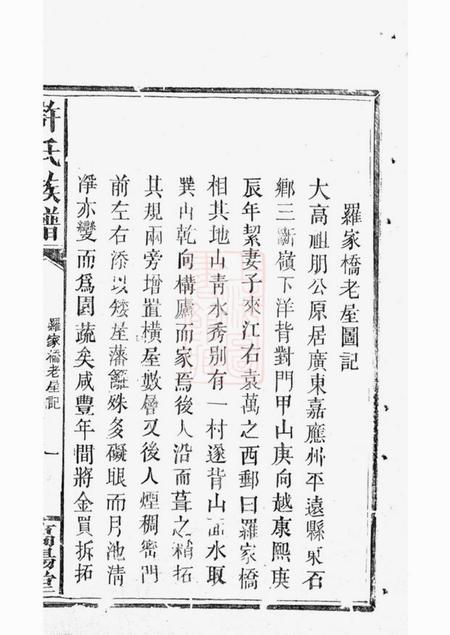 羅家橋老屋圖記
大高祖朋公原居廣東嘉應州平遠縣東石
鄉三斷嶺下洋背對門甲山庚向越康熙庚
辰年挈妻子來江右袁萬之西郵曰羅家橋
相其地山青水秀別有一村遂背山面水取
巽山乾向構廬而家焉後人沿而葺之稍拓
其規兩旁增置橫屋數層又後人煙稠密門
前左右添以矮垣藩籬殊多礙眼而月池清
淨亦變而為園蔬矣咸豐年間將金買拆拓
許氏族譜
羅家橋老屋記
一
高陽堂